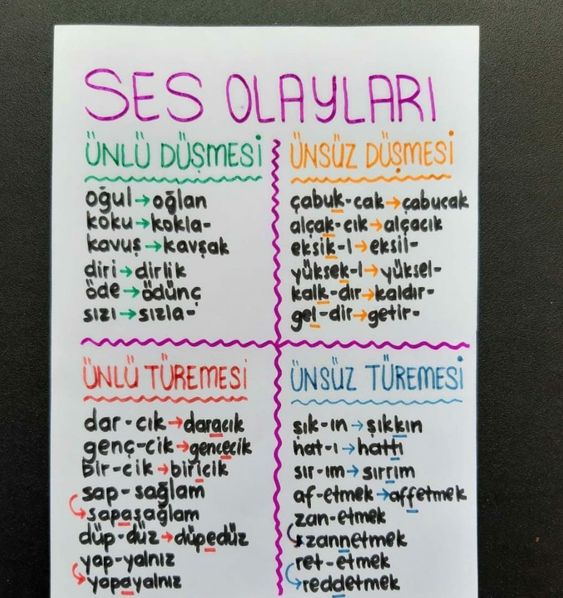 SES OLAYLARI
ÜNLÜ DÜŞMESİ
oğul→oğlan
koku→kokla-
kavuş→kavşak
diri→dirlik
öde→ödünç
sızı→sızla-
ÜNSÜZ DÜŞMESİ
çabuk-cak→çabucak
alçak-cık→alçacık
eksik-l→eksil-
yüksek-l→yüksel-
kalk-dır→kaldır-
gel-dir→getir-
ÜNLÜ TÜREMESİ
dar-cık→daracık
genç-cik→gencecik
bir-cik→biricik
sap-sağlam
→sapasağlam
düp-düz→düpedüz
yap-yalnız
→yapayalnız
ÜNSÜZ TÜREMESİ
şık-ın→şıkkın
hat-ı→hattı
sır-ım→sırrım
af-etmek→affetmek
zan-etmek
→zannetmek
ret-etmek
→reddetmek